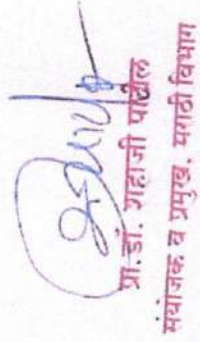 प्रा.डॉ. शहाजी पाटील
संयोजक व प्रमुख, मराठी विभाग